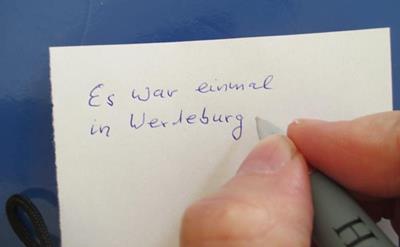 Es war einmal
in Werteburg
H